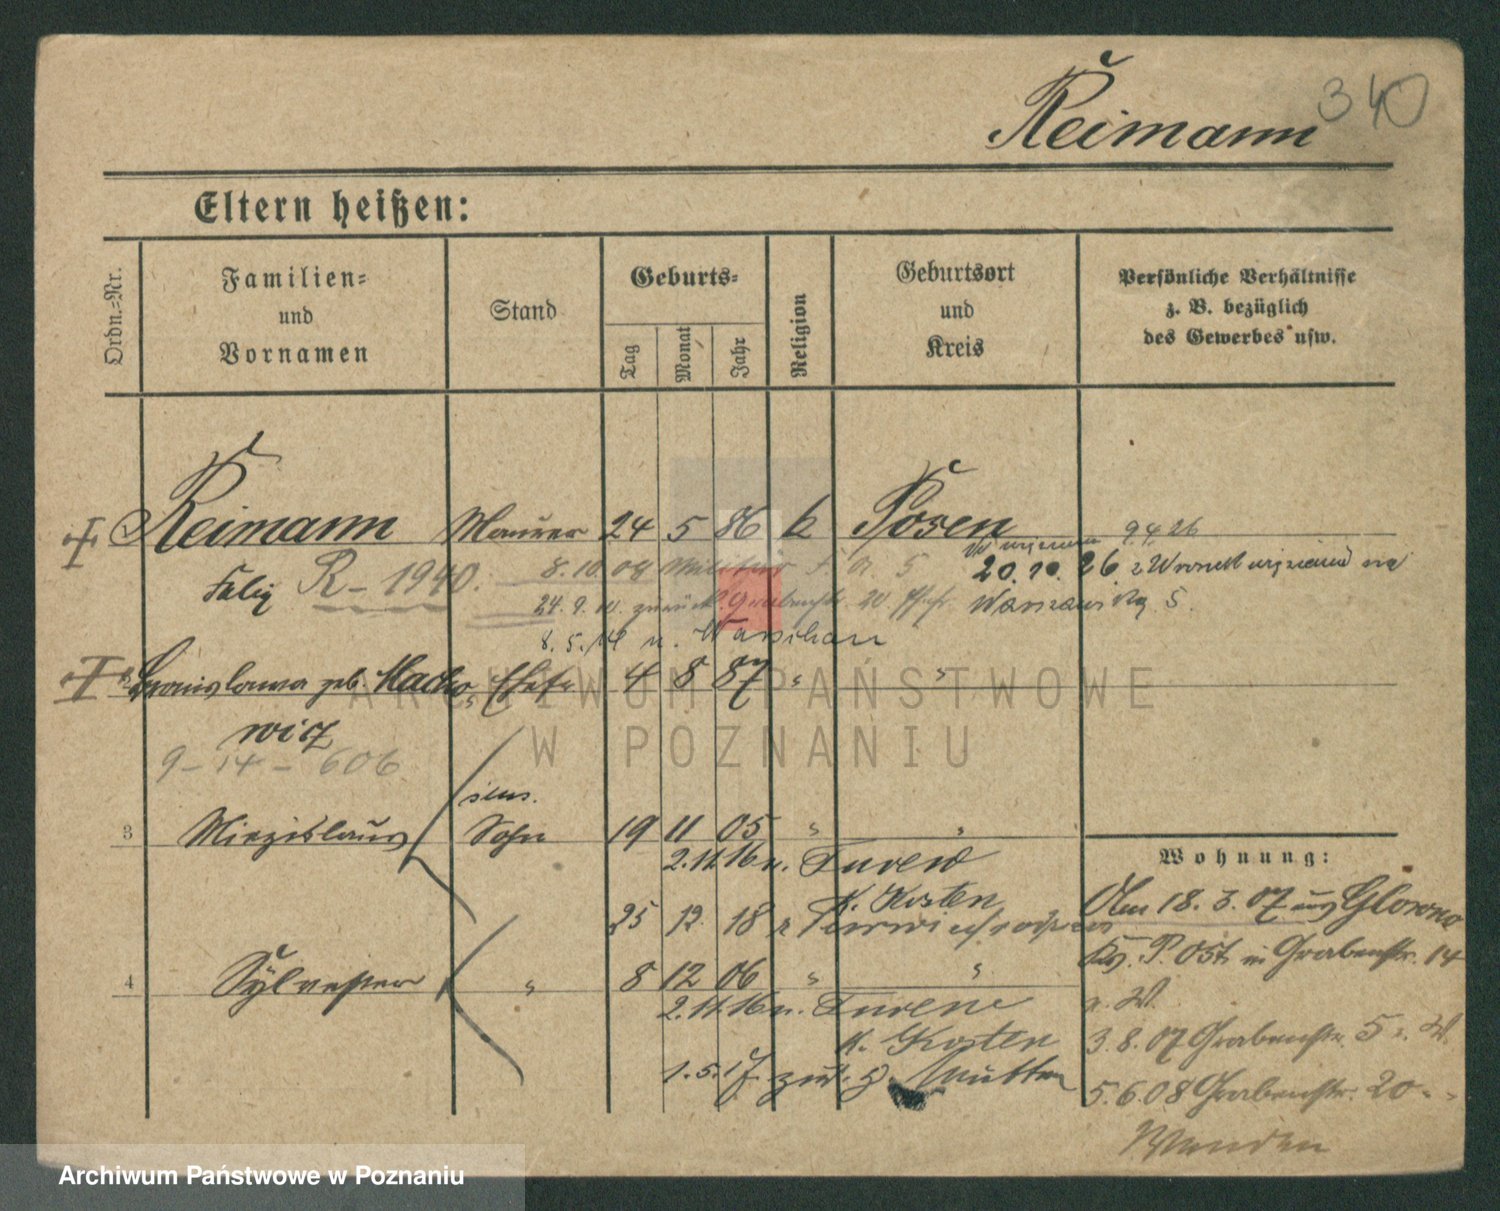 340
Reimann
Eltern heißen:
Ordn.-Nr.
Familien-
und
Vornamen
Stand
Geburts-
Tag
Monat
Jahr
Religion
Geburtsort
und
Kreis
Persönliche Verhältnisse
z. B. bezüglich
des Gewerbes usw.
Reimann Maurer 24 5 86 k Posen 9.4.26
Felix R-1940. 8.10.08 Militär 20.10.26
24.9.10. zurück Grabenstr. 20 Warszawska 5.
8.5.14 n. Warschau
Stanislawa geb. Macko Ehefr 4 8 87 " "
wicz
9-14-606
3 Miezislaus Sohn 19 11 05 " "
2.11.16 n. Turew
K. Kosten
25 12 18
4 Sylvester " 8 12 06 " "
2.11.16 n. Turew
K. Kosten
1.5.17 zur. z. Mutter
Wohnung:
Am 18.3.07 aus Glowno
Kr. P. Ost. in Grabenstr. 14
b. W.
3.8.07 Grabenstr. 5 b. W.
5.6.08 Grabenstr. 20
ARCHIWUM PAŃSTWOWE
W POZNANIU
Archiwum Państwowe w Poznaniu